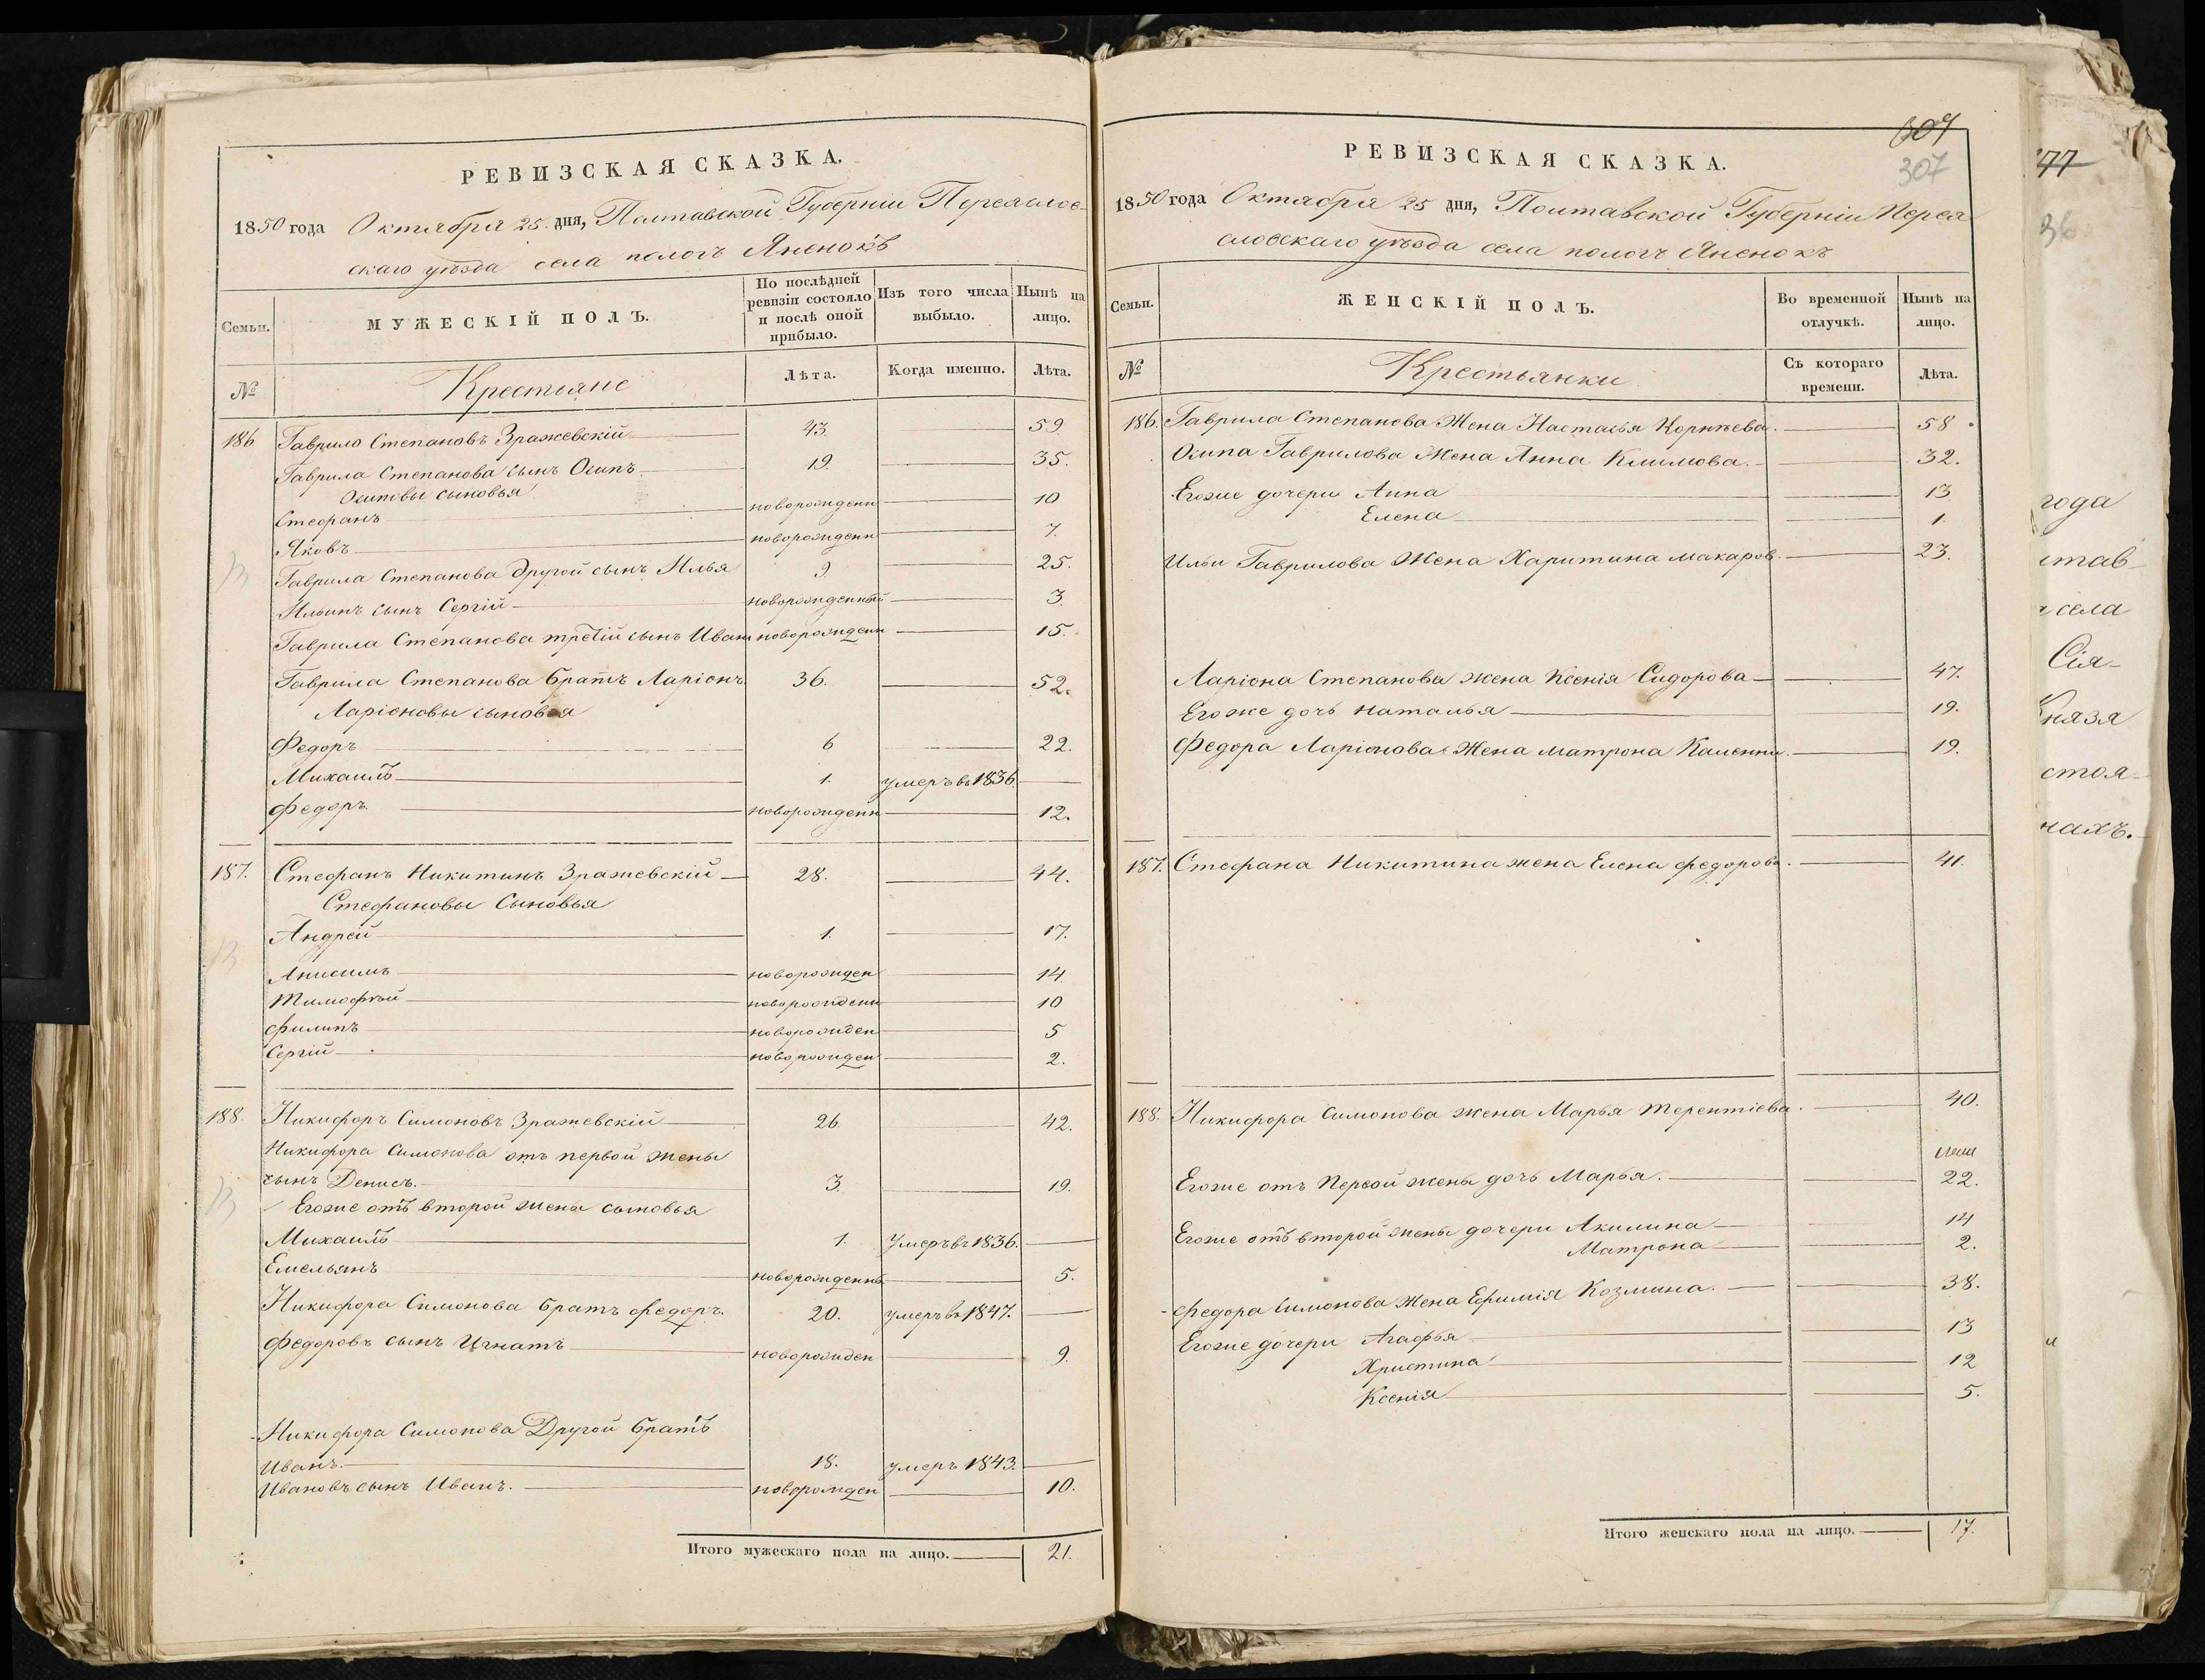 РЕВИЗСКАЯ СКАЗКА.
1850 года Октября 25. дня, Полтавской Губерніи Переяслов-
скаго уѣзда села пологъ Яненокъ
Семьи.
МУЖЕСКІЙ ПОЛЪ.
По послѣдней ревизіи состояло и послѣ оной прибыло.
Изъ того числа выбыло.
Нынѣ на лицо.
№
Крестьяне
Лѣта.
Когда именно.
Лѣта.
186 Гаврило Степановъ Зражевскій 43. 59
Гаврила Степанова сынъ Осипъ 19. 35.
Осиповы сыновья
Стефанъ новорожденн 10
Яковъ новорожденн 7.
Гаврила Степанова другой сынъ Илья 9. 25.
Ильинъ сынъ Сергій новорожденный 3.
Гаврила Степанова третій сынъ Иванъ новорожденн 15.
Гаврила Степанова братъ Ларіонъ 36. 52.
Ларіоновы сыновья
Федоръ 6 22.
Михаилъ 1. умеръ въ 1836.
Федоръ. новорожденн 12.
187. Стефанъ Никитинъ Зражевскій 28. 44.
Стефановы Сыновья
Андрей 1. 17.
Анисимъ новорожден 14
Тимофѣй новорожденн 10
Филипъ новорожден 5
Сергій новорожден 2.
188. Никифоръ Симоновъ Зражевскій 26. 42.
Никифора Симонова отъ первой жены
сынъ Денисъ. 3. 19.
Егоже отъ второй жены сыновья
Михаилъ 1. Умеръ въ 1836.
Емельянъ новорожденны 5.
Никифора Симонова братъ Федоръ. 20. умеръ въ 1847.
Федоровъ сынъ Игнатъ новорожден 9.
Никифора Симонова Другой братъ
Иванъ. 18. умеръ 1843.
Ивановъ сынъ Иванъ. новорожден 10.
Итого мужескаго пола на лицо. 21.
307
307
РЕВИЗСКАЯ СКАЗКА.
1850 года Октября 25 дня, Полтавской Губерніи Перея
словскаго уѣзда села пологъ Яненокъ
Семьи.
ЖЕНСКІЙ ПОЛЪ.
Во временной отлучкѣ.
Нынѣ на лицо.
№
Крестьянки
Съ котораго времени.
Лѣта.
186. Гаврила Степанова Жена Настасья Корнѣева. 58
Осипа Гаврилова Жена Анна Климова. 32.
Егоже дочери Анна 13
Елена 1.
Ильи Гаврилова Жена Харитина макаров. 23.
Ларіона Степанова жена Ксенія Сидорова 47.
Егоже дочь наталья 19.
Федора Ларіонова Жена матрона Каленни. 19.
187. Стефана Никитина жена Елена федорова. 41.
188. Никифора Симонова жена Марья терентіева. 40.
Егоже отъ Первой жены дочь Марья. 22.
Егоже отъ второй жены дочери Акилина 14
Матрона 2.
Федора Симонова Жена Ефимія Козмина. 38.
Егоже дочери Агафья 13
Христина 12
Ксенія 5.
Итого женскаго пола на лицо. 17.
77
года
села
Сія
Князя